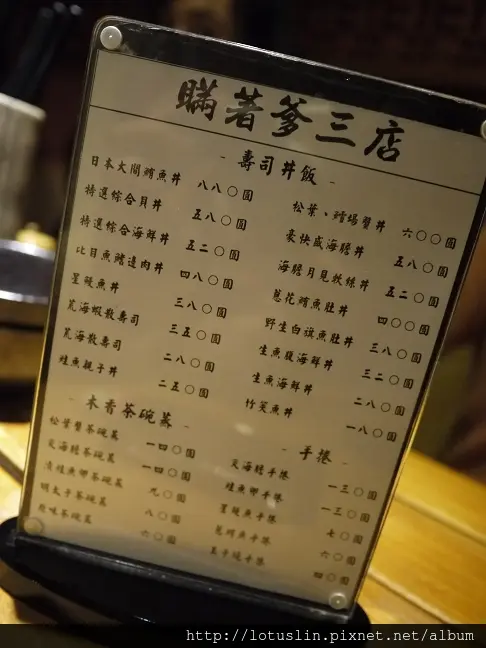 瞞著爹三店
- 壽司丼飯 -
日本大間鮪魚丼 八八〇圓
特選綜合貝丼 五八〇圓
特選綜合海鮮丼 五二〇圓
比目魚鰭邊肉丼 四八〇圓
星鰻魚丼 三八〇圓
荒海蝦散壽司 三五〇圓
荒海散壽司 二八〇圓
鮭魚親子丼 二五〇圓
松葉、鱈場蟹丼 六〇〇圓
豪快盛海膽丼 五八〇圓
海膽月見軟絲丼 五二〇圓
蔥花鮪魚肚丼 四〇〇圓
野生白旗魚肚丼 三八〇圓
生魚腹海鮮丼 三二〇圓
生魚海鮮丼 二八〇圓
竹筴魚丼 一八〇圓
- 木香茶碗蒸 -
松葉蟹茶碗蒸 一四〇圓
海膽茶碗蒸 一四〇圓
漬鮭魚卵茶碗蒸 九〇圓
明太子茶碗蒸 八〇圓
原味茶碗蒸 六〇圓
- 手捲 -
海膽手捲 一三〇圓
鮭魚卵手捲 一三〇圓
星鰻魚手捲 七〇圓
蔥鮪魚手捲 六〇圓
手捲 四〇圓
http://lotuslin.pixnet.net/album